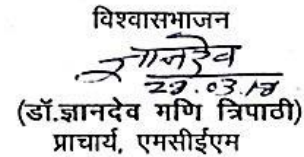 विश्वासभाजन
ज्ञानदेव
29.03.18
(डॉ.ज्ञानदेव मणि त्रिपाठी)
प्राचार्य, एमसीईएम